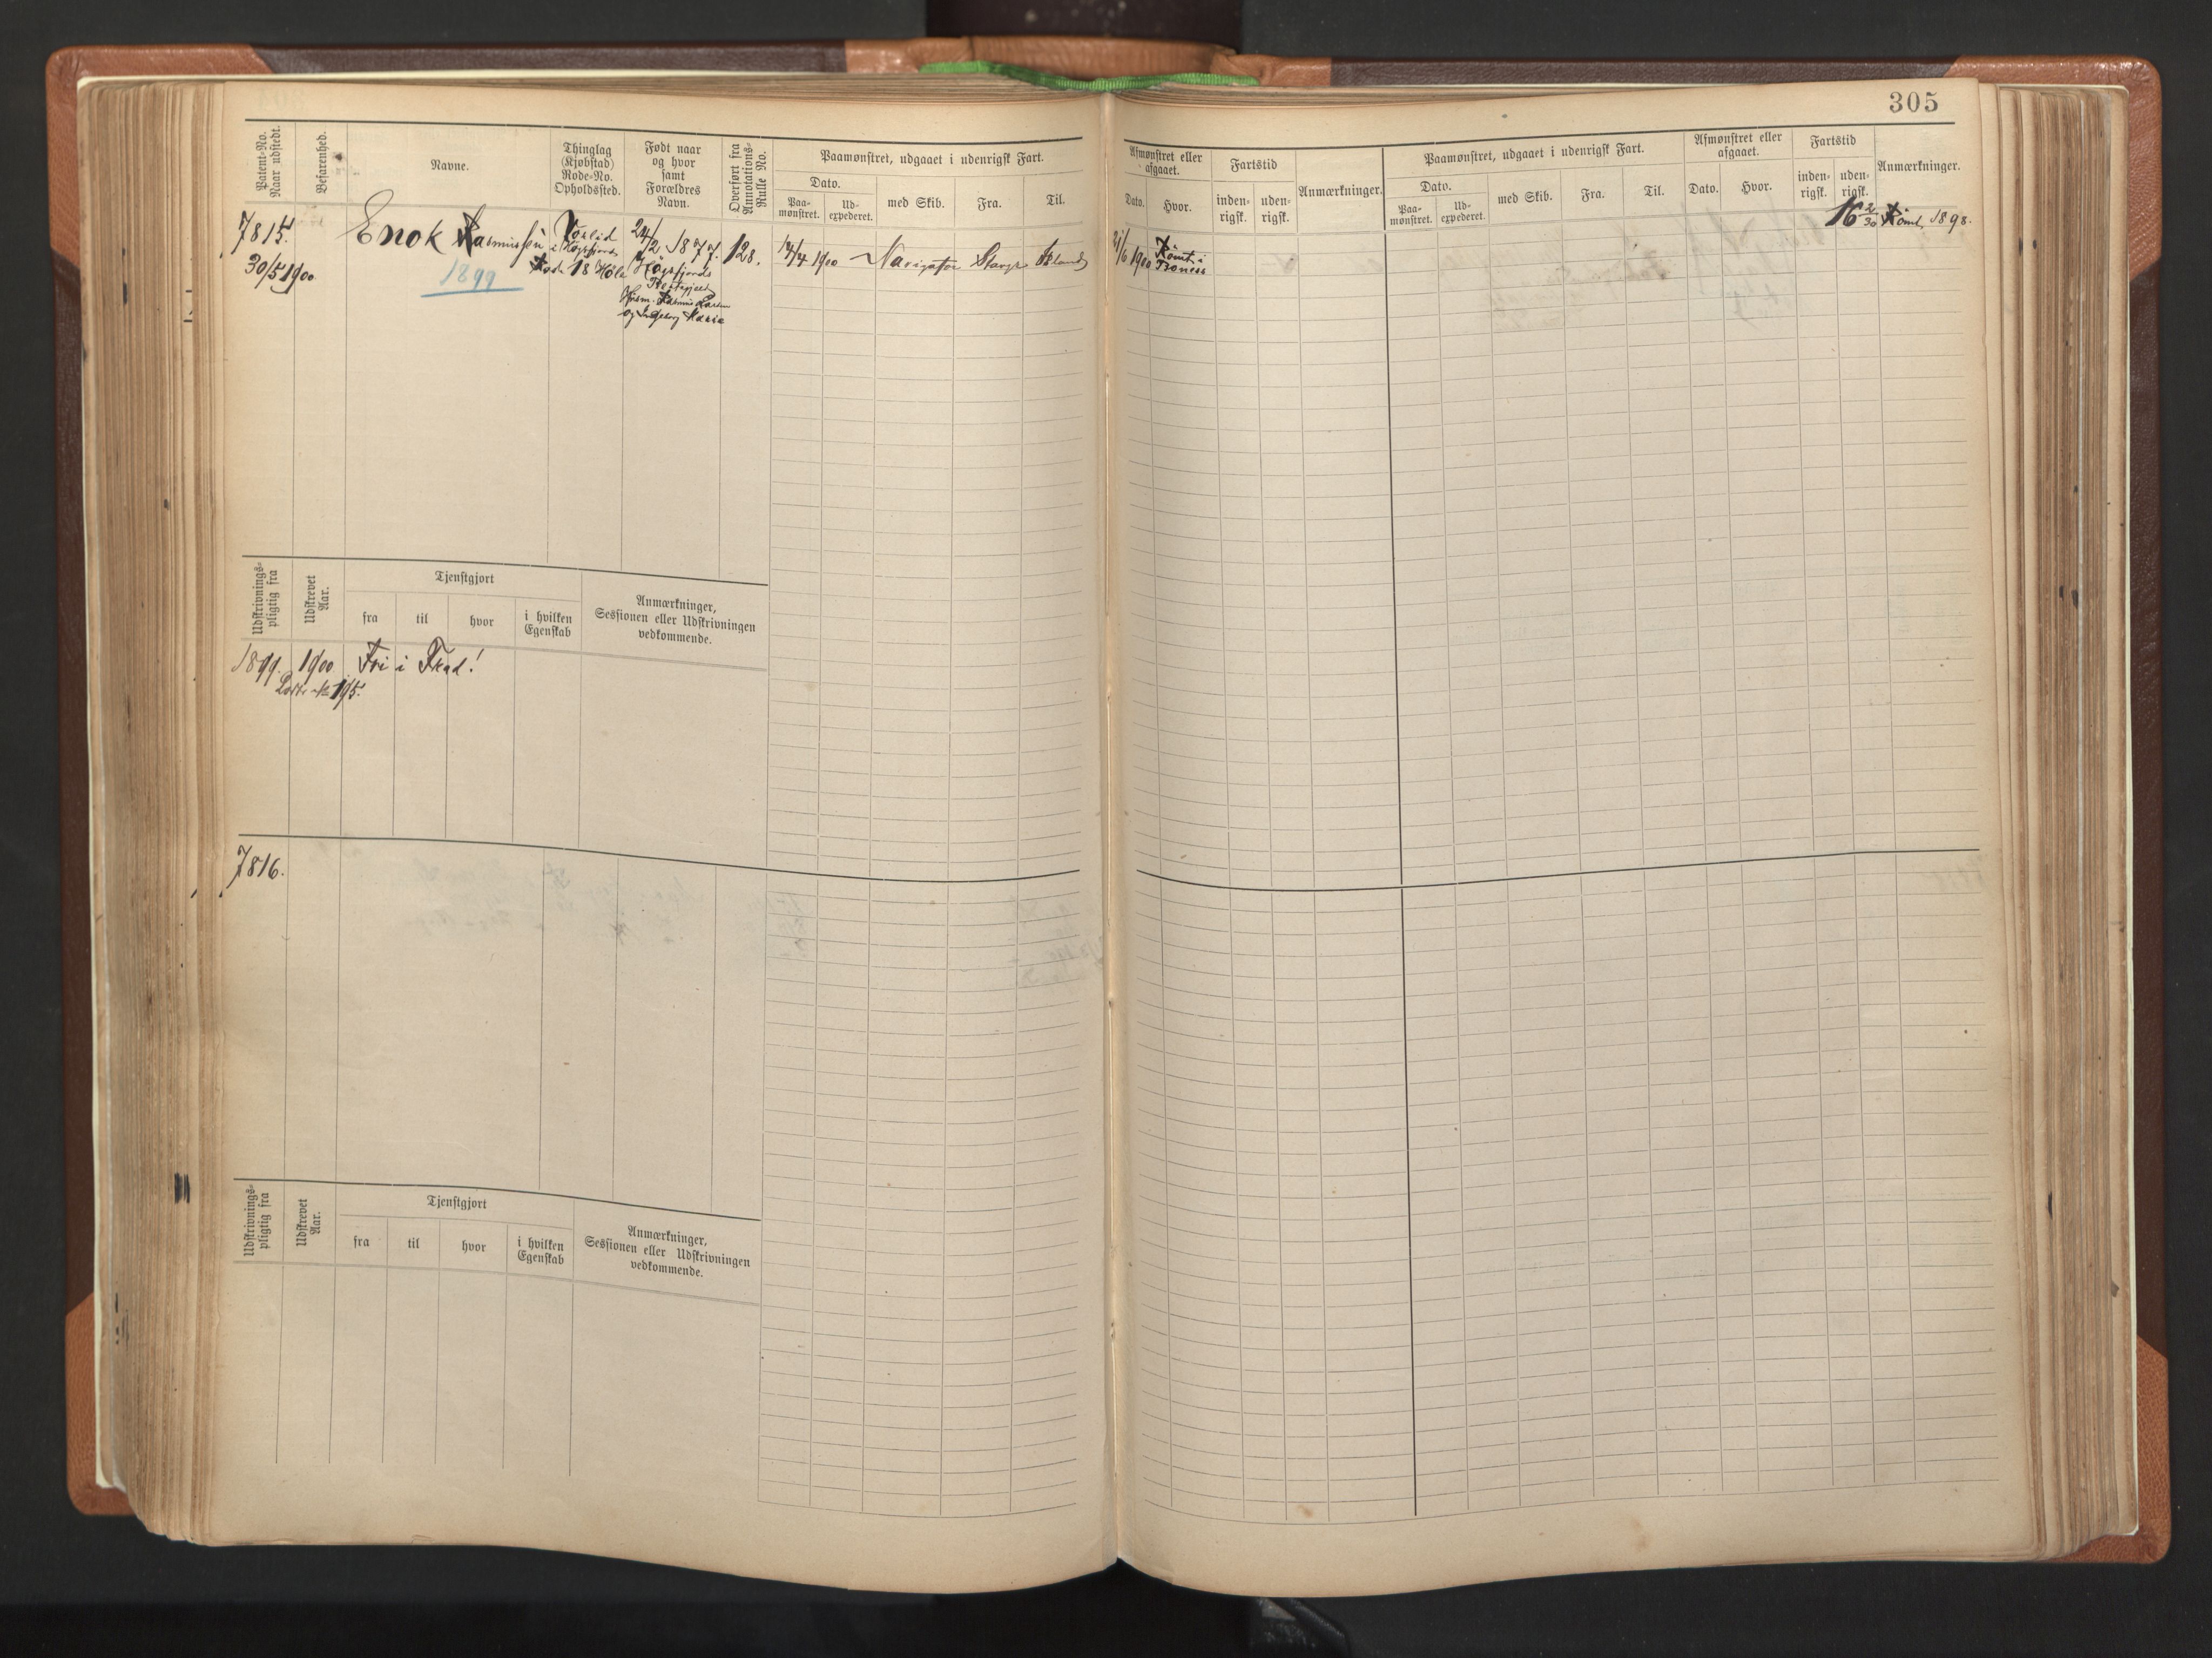 305
Patent-No.
Naar udstedt.
Befarenhed.
Navne.
Thinglag
(Kjøbstad)
Rode-No.
Opholdssted.
Født naar
og hvor
samt
Forældres
Navn.
Overført fra
Annotations-
Rulle No.
Paamønstret, udgaaet i udenrigsk Fart.
Dato.
Paa-
mønstret.
Ud-
expederet.
med Skib.
Fra.
Til.
Afmønstret eller
afgaaet.
Dato.
Hvor.
Fartstid
inden-
rigsk.
uden-
rigsk.
Anmærkninger.
Paamønstret, udgaaet i udenrigsk Fart.
Dato.
Paa-
mønstret.
Ud-
expederet.
med Skib.
Fra.
Til.
Afmønstret eller
afgaaet.
Dato.
Hvor.
Fartstid
inden-
rigsk.
uden-
rigsk.
Anmærkninger.
7815.
30/5 1900
Enok Rasmussen
1899
i Høgsfjord
Rode 18 Höle
24/2 1877.
Høgsfjords
Præstegjeld
Husm. Rasmus Larsen
og Ingeborg Maria
128.
14/4 1900 Navigator Stavgr Island
21/6 1900 Römt i
Boness
16 2/30 Römt, 1898.
Udskrivnings-
pligtig fra
Udskrevet
Aar.
Tjenstgjort
fra
til
hvor
i hvilken
Egenskab
Anmærkninger,
Sessionen eller Udskrivningen
vedkommende.
1899. 1900 Fri i Fred!
Lodtr. No 195.
7816.
Udskrivnings-
pligtig fra
Udskrevet
Aar.
Tjenstgjort
fra
til
hvor
i hvilken
Egenskab
Anmærkninger,
Sessionen eller Udskrivningen
vedkommende.